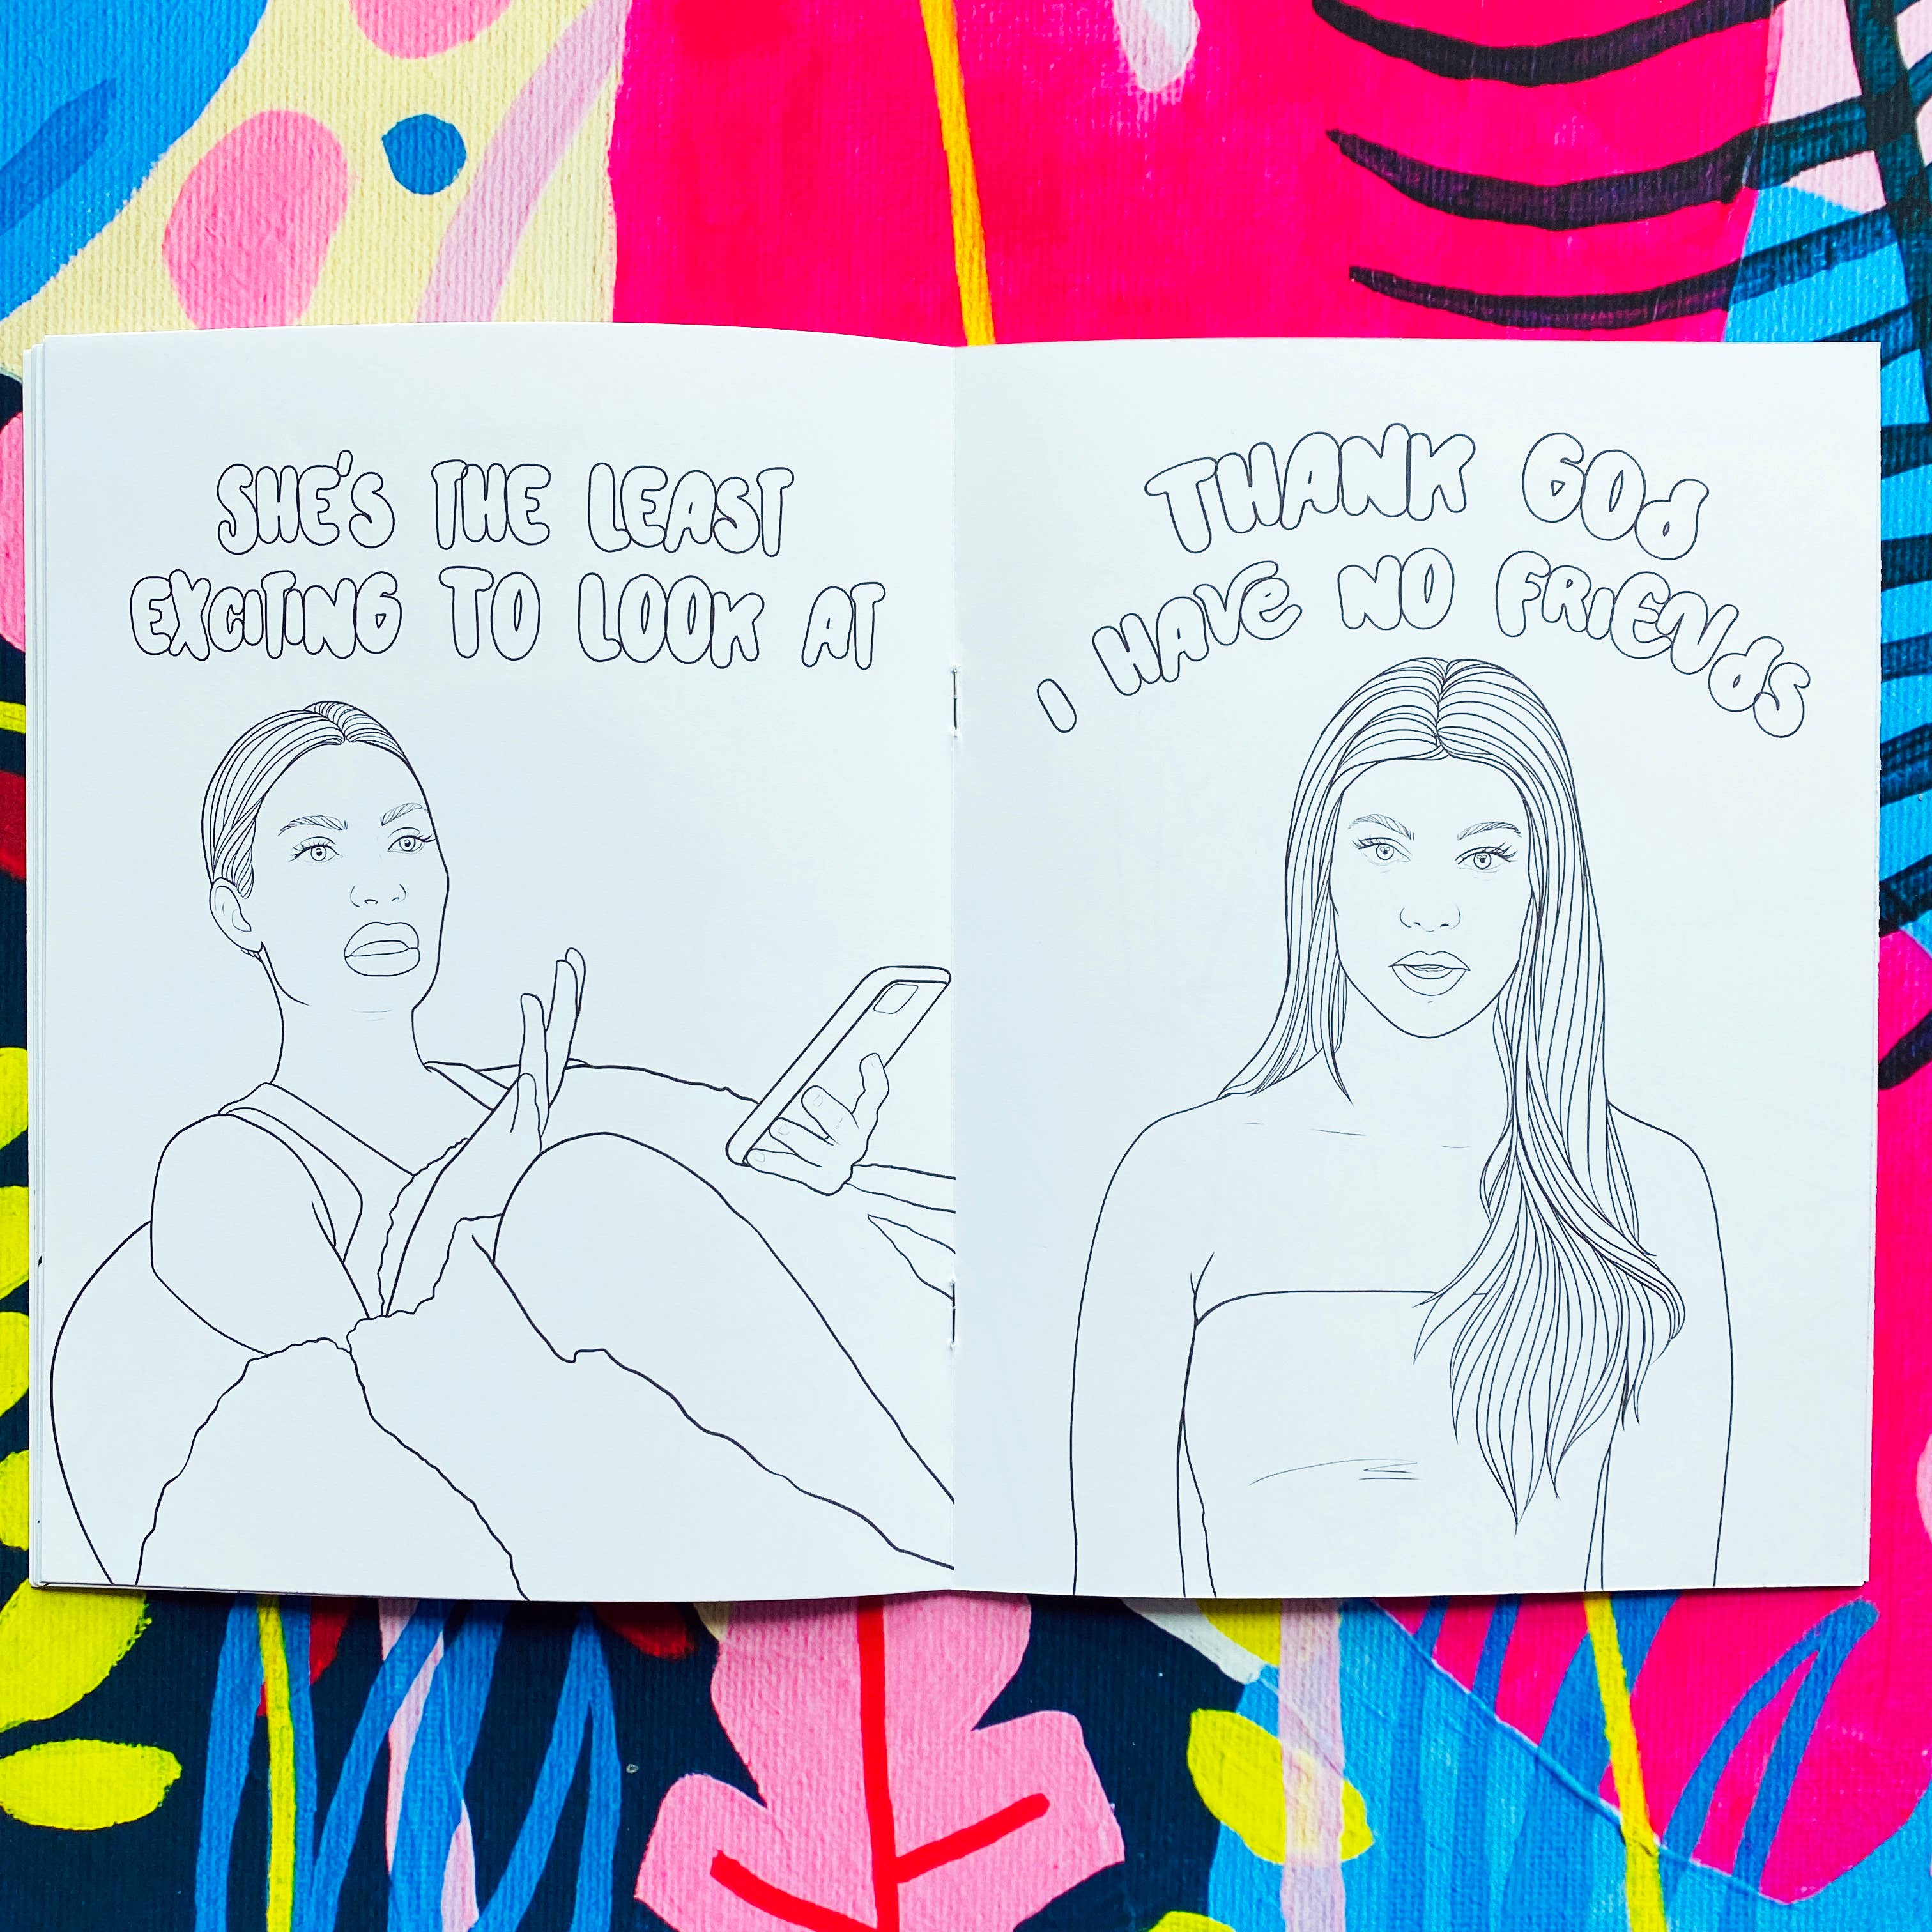 SHE'S THE LEAST
EXCITING TO LOOK AT
THANK GOd
I HAVe NO FRiENdS